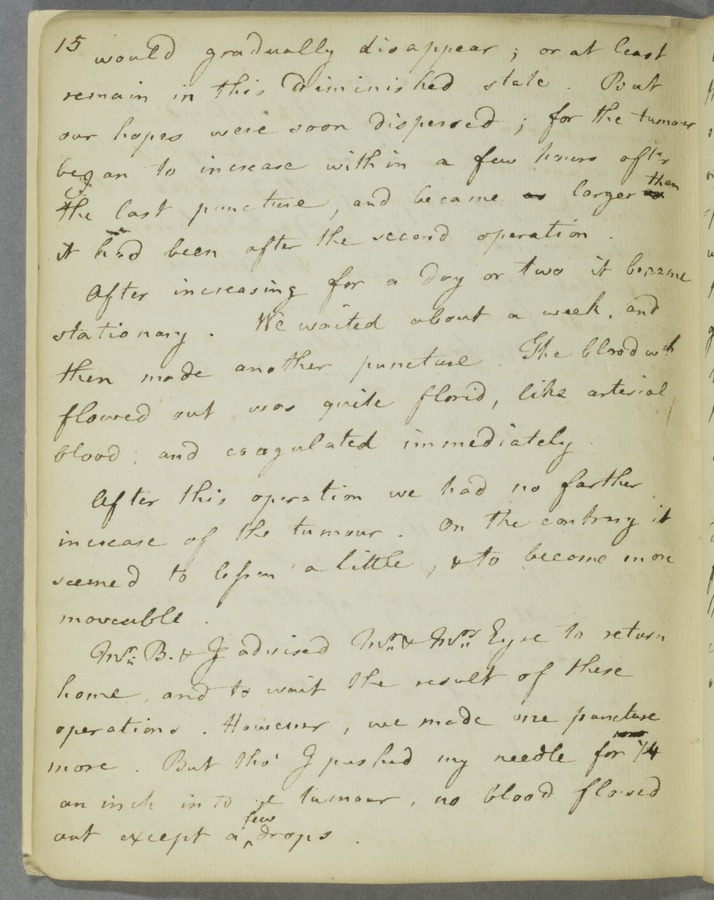 15 would gradually disappear; or at least
remain in this diminished state. But
our hopes were soon dispersed; for the tumour
began to increase within a few hours after
the last puncture, and became as larger than
it had been after the second operation.
After increasing for a day or two it became
stationary. We waited about a week, and
then made another puncture. The blood wch
flowed out was quite florid, like arterial
blood; and coagulated immediately.
After this operation we had no farther
increase of the tumour. On the contrary it
seemed to lessen a little, & to become more
moveable.
Mr. B. & I advised Mr. & Mrs. Eyre to return
home, and to wait the result of these
operations. However, we made one puncture
more. But tho' I pushed my needle for 3/4
an inch into ye tumour, no blood flowed
out except a few drops.